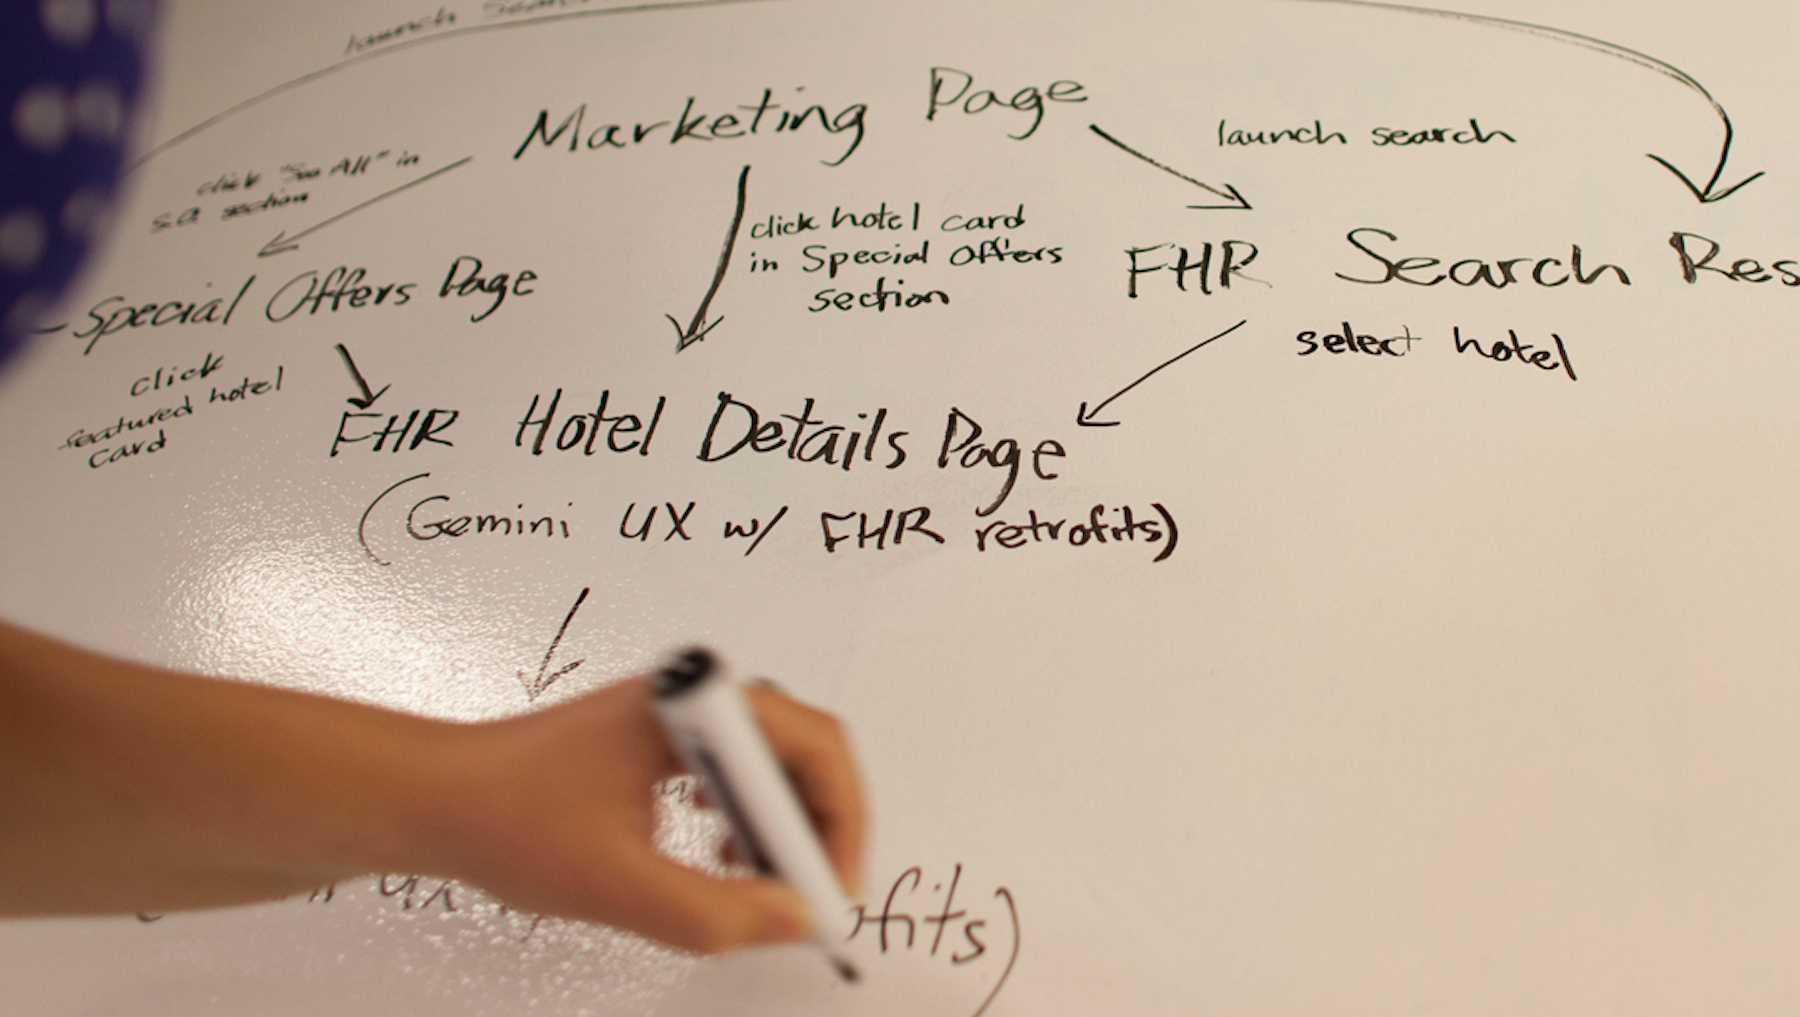 launch
Marketing Page
launch search
click "See All" in
S.O. section
click hotel card
in Special Offers
section
Special Offers Page
FHR Search Res
select hotel
click
featured hotel
card
FHR Hotel Details Page
(Gemini UX w/ FHR retrofits)
UX
ofits)